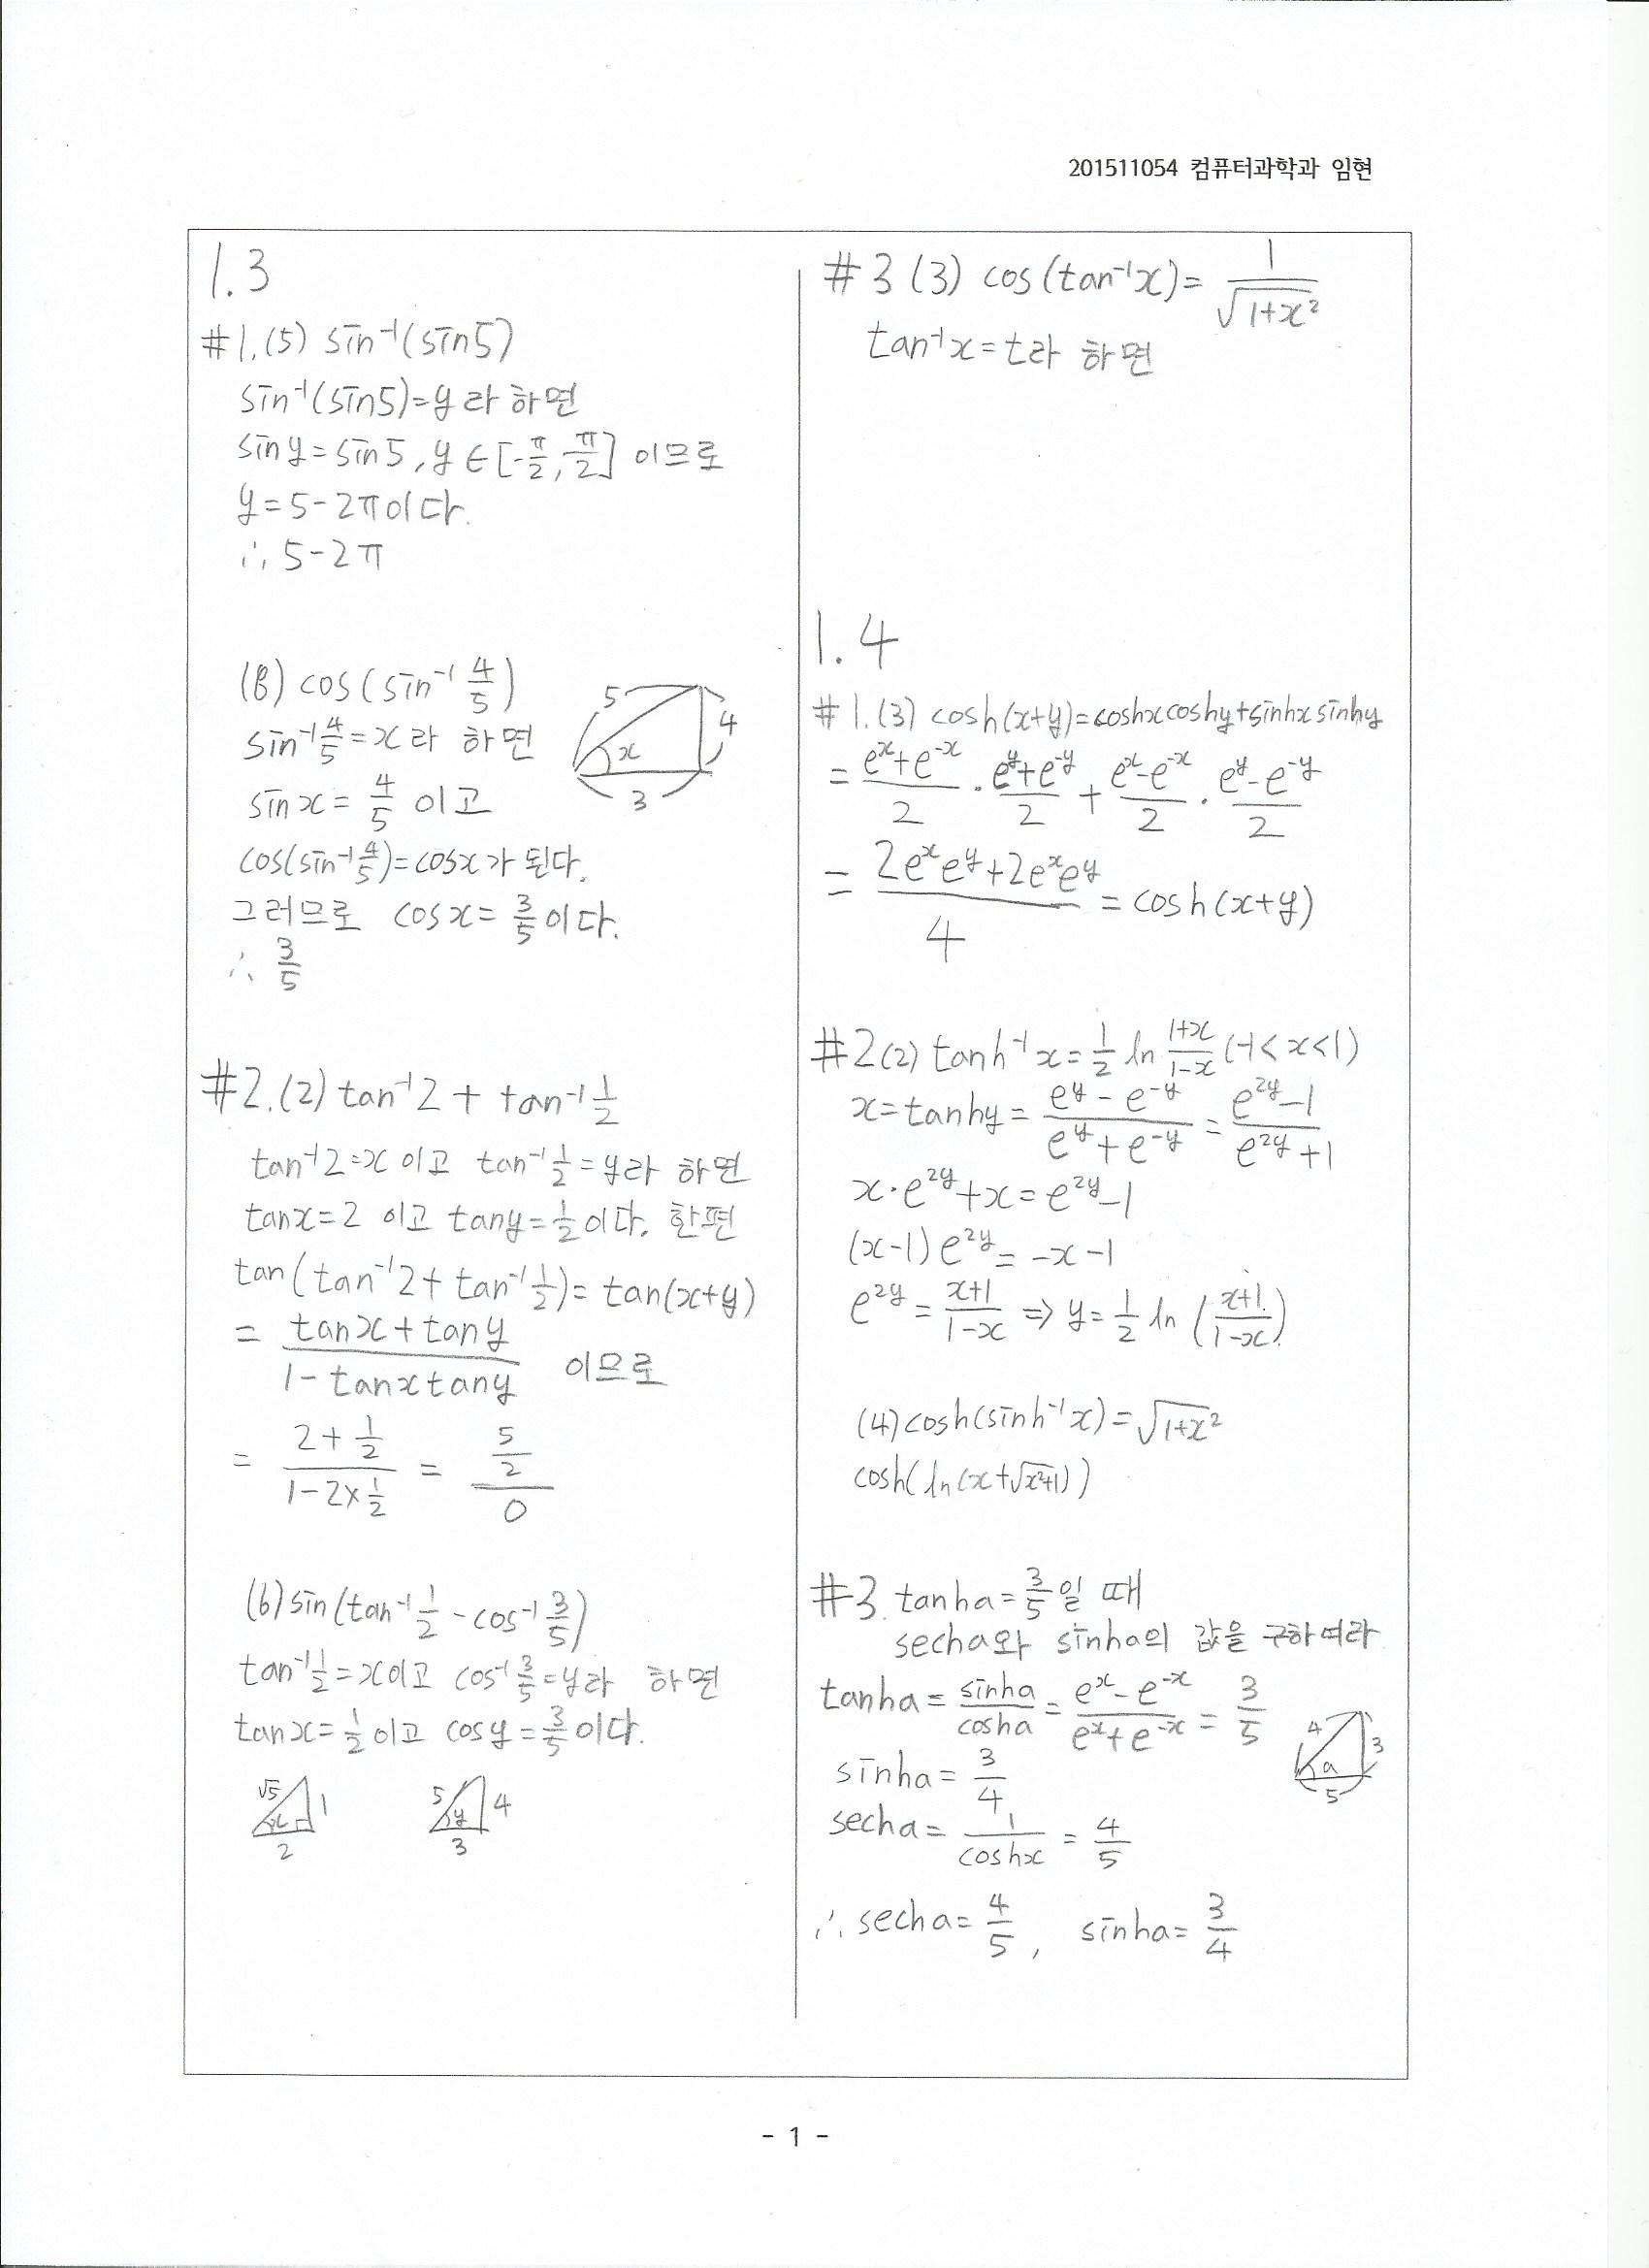 201511054 컴퓨터과학과 임현
1.3
#1.(5) sin⁻¹(sin5)
sin⁻¹(sin5)=y라 하면
siny=sin5, y∈[-π/2, π/2] 이므로
y=5-2π이다.
∴ 5-2π
(8) cos(sin⁻¹ 4/5)
sin⁻¹ 4/5=x라 하면
sinx= 4/5 이고
cos(sin⁻¹ 4/5)=cosx가 된다.
그러므로 cosx= 3/5이다.
∴ 3/5
5
4
x
3
#2.(2) tan⁻¹2 + tan⁻¹ 1/2
tan⁻¹2=x 이고 tan⁻¹ 1/2=y라 하면
tanx=2 이고 tany=1/2이다. 한편
tan(tan⁻¹2+tan⁻¹ 1/2)=tan(x+y)
= (tanx+tany)/(1-tanxtany) 이므로
= (2+1/2)/(1-2×1/2) = (5/2)/0
(6) sin(tan⁻¹ 1/2 - cos⁻¹ 3/5)
tan⁻¹ 1/2=x이고 cos⁻¹ 3/5=y라 하면
tanx=1/2이고 cosy=3/5이다.
√5 x 1 2
5 y 4 3
#3 (3) cos(tan⁻¹x)= 1/√(1+x²)
tan⁻¹x=t라 하면
1.4
#1.(3) cosh(x+y)=coshxcoshy+sinhxsinhy
= (eˣ+e⁻ˣ)/2 · (eʸ+e⁻ʸ)/2 + (eˣ-e⁻ˣ)/2 · (eʸ-e⁻ʸ)/2
= (2eˣeʸ+2eˣeʸ)/4 = cosh(x+y)
#2(2) tanh⁻¹x= 1/2 ln (1+x)/(1-x) (-1<x<1)
x=tanhy= (eʸ-e⁻ʸ)/(eʸ+e⁻ʸ) = (e²ʸ-1)/(e²ʸ+1)
x·e²ʸ+x=e²ʸ-1
(x-1)e²ʸ=-x-1
e²ʸ= (x+1)/(1-x) ⇒ y= 1/2 ln ((x+1)/(1-x))
(4) cosh(sinh⁻¹x)=√(1+x²)
cosh(ln(x+√(x²+1)))
#3. tanha= 3/5일 때
secha와 sinha의 값을 구하여라
tanha= sinha/cosha = (eˣ-e⁻ˣ)/(eˣ+e⁻ˣ) = 3/5
sinha= 3/4
secha= 1/coshx = 4/5
4
3
a
5
∴ secha= 4/5, sinha= 3/4
- 1 -